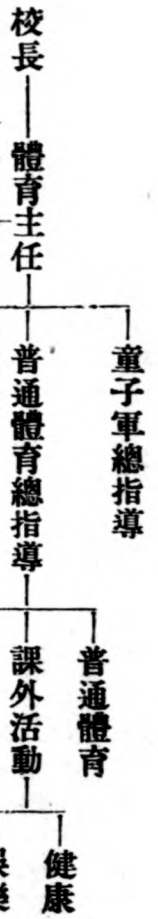 校長
體育主任
童子軍總指導
普通體育總指導
普通體育
課外活動
健康